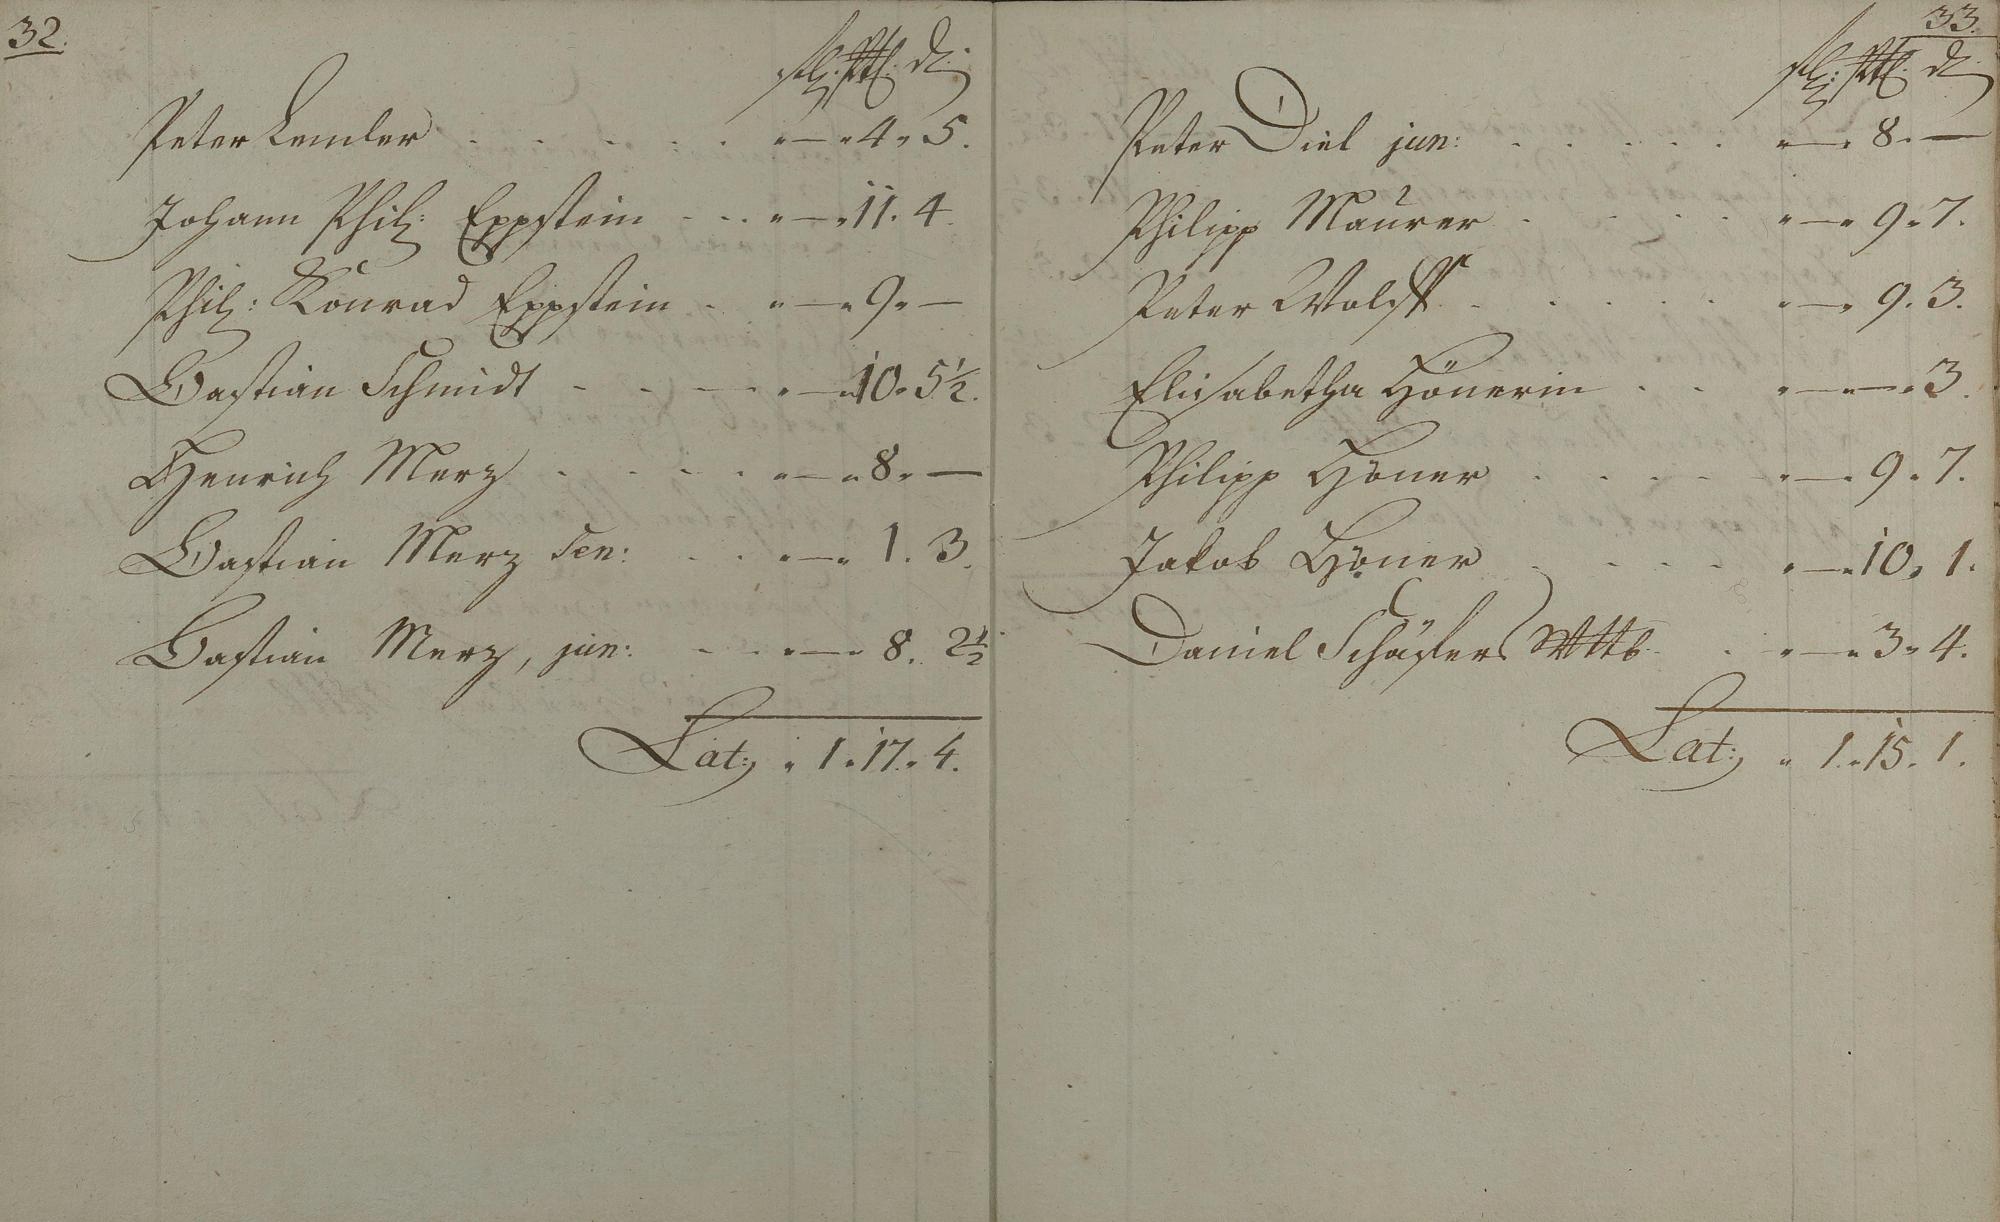 32.
fl: Btz: d:
Peter Lemler . . . . . " — " 4 " 5.
Johann Phil: Eppstein - . . " — " 11. 4.
Phil: Konrad Eppstein . " — " 9 " —
Bastian Schmidt - - - " — " 10 " 5½.
Henrich Merz . . . . " — " 8 " —
Bastian Merz sen: . . " — " 1. 3.
Bastian Merz, jun: - . . " — " 8. 2½
Lat: " 1 " 17 " 4.
33.
fl: d:
Peter Diel jun: . . . . . " — " 8. —
Philipp Maurer . . . . " — " 9 " 7.
Peter Wolff . . . . . " — " 9. 3.
Elisabetha Hönerin . . " — " — " 3.
Philipp Höner . . . . " — " 9 " 7.
Jakob Höner . . . . " — " 10 " 1.
Daniel Schäfers Wttb. . " — " 3 " 4.
Lat: " 1 " 15. 1.